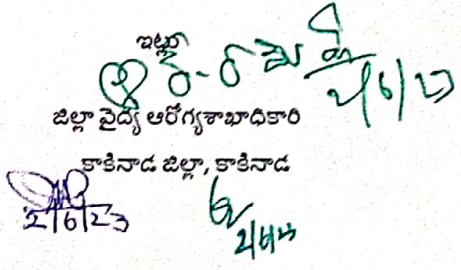 ఇట్లు
2/6/23
జిల్లా వైద్య ఆరోగ్యశాఖాధికారి
కాకినాడ జిల్లా, కాకినాడ
2/6/23
2/6/23